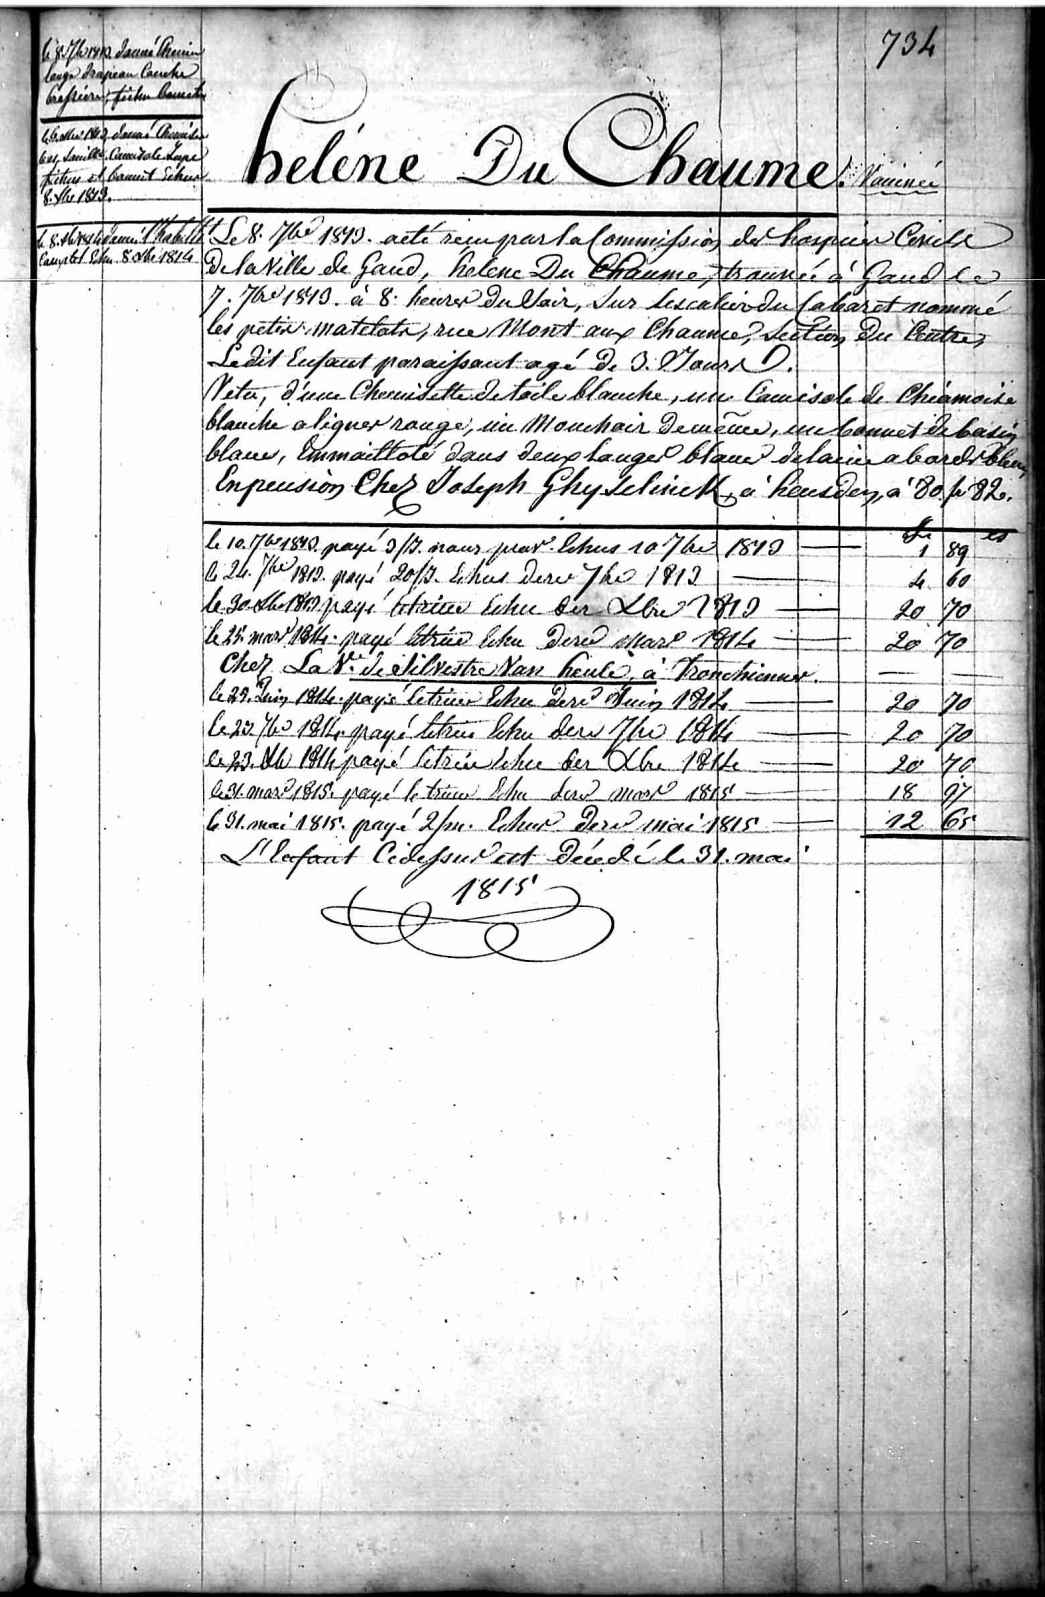 734
le 8 7bre 1813 donné Chemise
lange drapeau Couche
brassiere, fichu bonnet
le 8 Xbre 1813 donné Chemise
bas, Camisole Jupe
fichu et bonnet Echu
8 Xbre 1813.
le 8 Xbre 1814 donné l'habillt
Complet Echu 8 Xbre 1814
helène Du Chaume. Vaccinée
Le 8. 7bre 1813. a eté reçu par la Commission des hospices Civils
De la Ville de Gand, helene Du Chaume, trouvée à Gand le
7. 7bre 1813. à 8. heures Du Soir, Sur l'escalier du Cabaret nommé
les petits matelots, rue Mont aux Chaume, Section Du Centre,
Ledit Enfant paraissant agé de 3. Jours.
Vetu, d'une Chemisette de toile blanche, un Camisole de Chiamoise
blanche a lignes rouge, un Mouchoir de même, un bonnet de basin
blanc, Emmailloté dans deux langes blancs de laine a bords bleus,
En pension Chez Joseph Ghyselinck, à heusden, à 80. fr 82.
fr cs
le 10. 7bre 1813. payé 3/J. nour prov. Echus 10 7bre 1813 — 1 89
le 24. 7bre 1813. payé 20/J. Echus dere 7bre 1813 — 4 60
le 30. Xbre 1813 payé letrim Echu der Xbre 1813 — 20 70
le 25. mars 1814. payé letrim Echu dere mars 1814 — 20 70
Chez La Ve de Silvestre Van heule, à Tronchiennes. — —
le 29. Juin 1814. payé letrim Echu dere Juin 1814 — 20 70
le 23. 7bre 1814. payé letrim Echu dere 7bre 1814 — 20 70
le 23. Xb 1814 payé letrim Echu der Xbre 1814 — 20 70
le 31. mars 1815. payé le trim Echu dere mars 1815 — 18 97
le 31. mai 1815. payé 2/m. Echus dere mai 1815 — 12 65
L'Enfant Cidessus est Décédé le 31. mai
1815